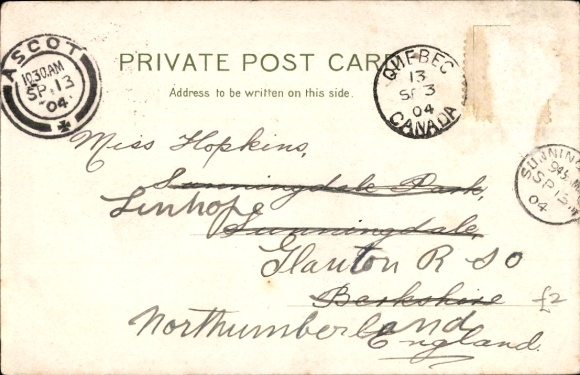 PRIVATE POST CARD
Address to be written on this side.
ASCOT
10.30 AM
SP 13
04
QUEBEC
13
SP 3
04
CANADA
SUNNIN
945 AM
SP 13
04
Miss Hopkins,
Sunningdale Park,
Linhope
Sunningdale,
Glanton R S O
Berkshire
£2
Northumberland
England.